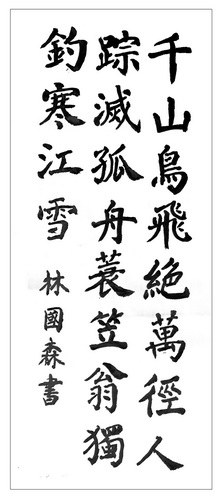 千山鳥飛絶萬徑人
踪滅孤舟蓑笠翁獨
釣寒江雪
林國森書